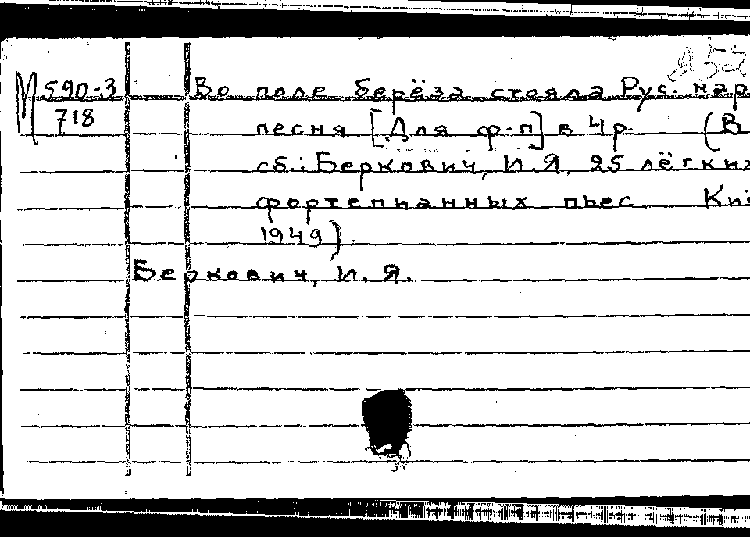 М 590-3 Во поле берёза стояла Рус. нар
718 песня [Для ф-п] в 4 р. (В
сб.: Беркович, И. Я. 25 лёгких
фортепианных пьес Ки
1949)
Беркович, И. Я.